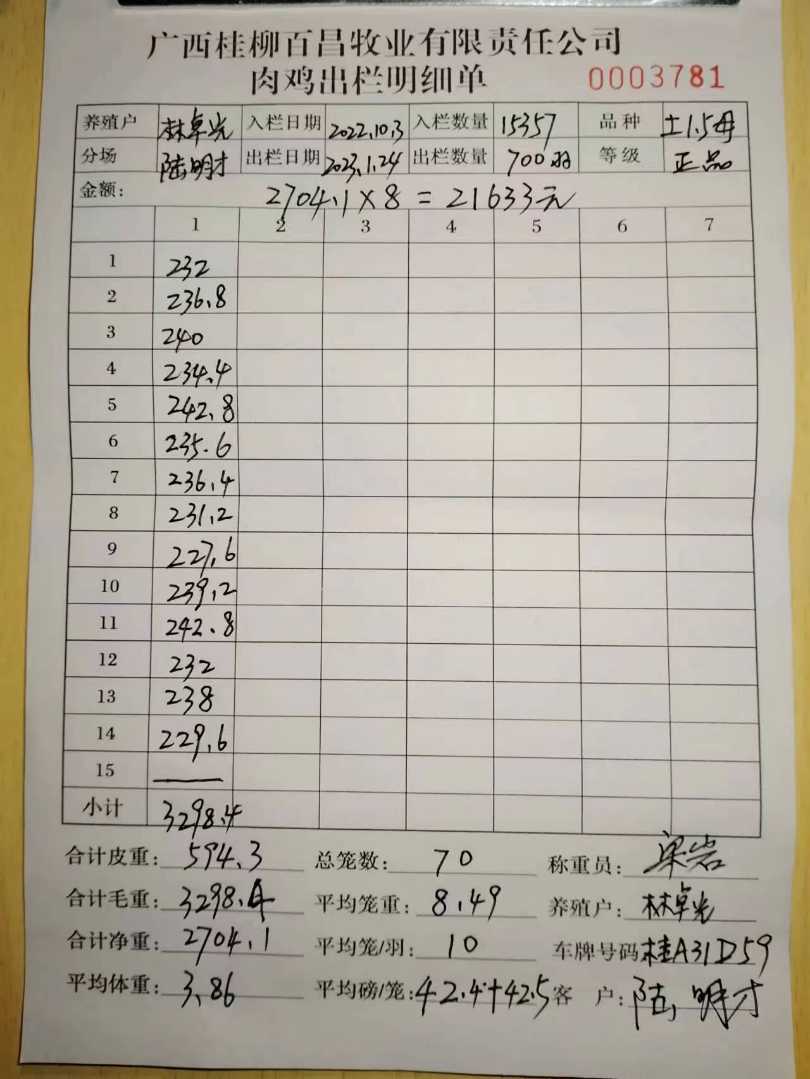 广西桂柳百昌牧业有限责任公司
肉鸡出栏明细单 0003781
养殖户 林卓光 入栏日期 2022.10.3 入栏数量 15357 品种 土1.5母
分场 陆明才 出栏日期 2023.1.24 出栏数量 700羽 等级 正品
金额: 2704.1×8=21633元
1 2 3 4 5 6 7
1 232
2 236.8
3 240
4 234.4
5 242.8
6 235.6
7 236.4
8 231.2
9 227.6
10 239.2
11 242.8
12 232
13 238
14 229.6
15 —
小计 3298.4
合计皮重: 594.3 总笼数: 70 称重员: 梁岩
合计毛重: 3298.4 平均笼重: 8.49 养殖户: 林卓光
合计净重: 2704.1 平均笼/羽: 10 车牌号码 桂A31D59
平均体重: 3.86 平均磅/笼: 42.4+42.5 客户: 陆明才